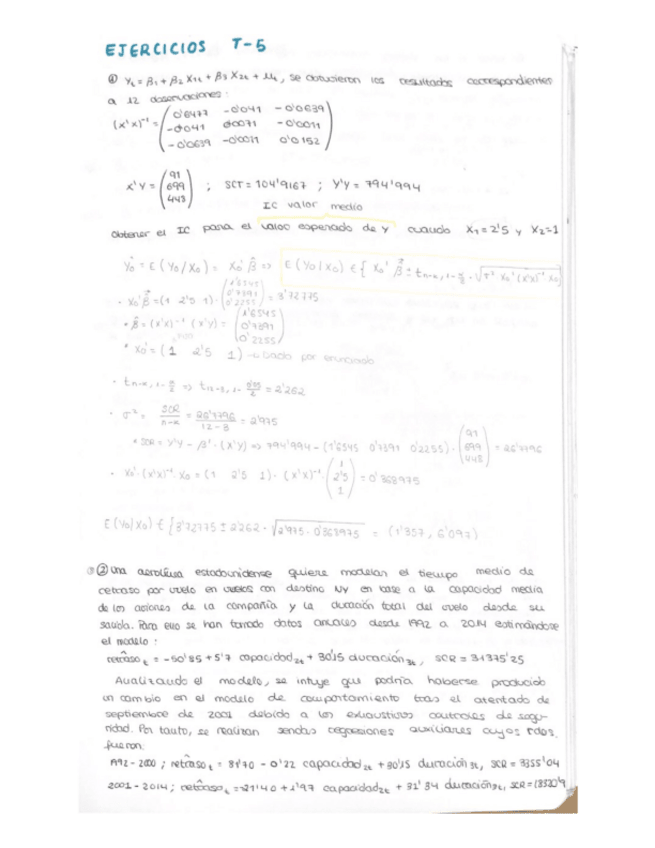 EJERCICIOS T-5
① Yt = β1 + β2 X1t + β3 X2t + ut, se obtuvieron los resultados correspondientes
a 12 observaciones:
(X'X)⁻¹ = ( 0'6477 -0'041 -0'0639
-0'041 0'0071 -0'0011
-0'0639 -0'0011 0'0152 )
X'Y = ( 91 699 448 ) ; SCT = 104'9167 ; Y'Y = 794'994
IC valor medio
Obtener el IC para el valor esperado de Y cuando X1 = 2'5 y X2 = 1
Ŷ0 = E (Y0/X0) = X0' β̂ => E (Y0/X0) ∈ { X0' β̂ ± t n-k, 1-α/2 · √σ² X0' (X'X)⁻¹ X0 }
· X0' β̂ = (1 2'5 1) · ( 1'6545 0'7391 0'2255 ) = 3'72775
* β̂ = (X'X)⁻¹ (X'Y) = ( 1'6545 0'7391 0'2255 )
* X0' = (1 2'5 1) → dado por enunciado
· t n-k, 1-α/2 => t 12-3, 1-0'05/2 = 2'262
· σ² = SCR/n-k = 26'7796/12-3 = 2'975
* SCR = Y'Y - β' · (X'Y) => 794'994 - (1'6545 0'7391 0'2255) · ( 91 699 448 ) = 26'7796
· X0' · (X'X)⁻¹ · X0 = (1 2'5 1) · (X'X)⁻¹ · ( 1 2'5 1 ) = 0'368975
E (Y0/X0) ∈ { 3'72775 ± 2'262 · √2'975 · 0'368975 = (1'357, 6'097)
② Una aerolínea estadounidense quiere modelar el tiempo medio de
retraso por vuelo en vuelos con destino NY en base a la capacidad media
de los aviones de la compañía y la duración total del vuelo desde su
salida. Para ello se han tomado datos anuales desde 1992 a 2014 estimándose
el modelo:
retraso t = -50'85 + 5'7 capacidad 2t + 30'15 duración 3t, SCR = 31375'25
Analizando el modelo, se intuye que podría haberse producido
un cambio en el modelo de comportamiento tras el atentado de
septiembre de 2001 debido a los exhaustivos controles de segu-
ridad. Por tanto, se realizan sendas regresiones auxiliares cuyos rdos.
fueron:
1992 - 2000 ; retraso t = 31'70 - 0'22 capacidad 2t + 30'15 duración 3t, SCR = 3355'04
2001 - 2014 ; retraso t = -21'40 + 1'97 capacidad 2t + 31'34 duración 3t,